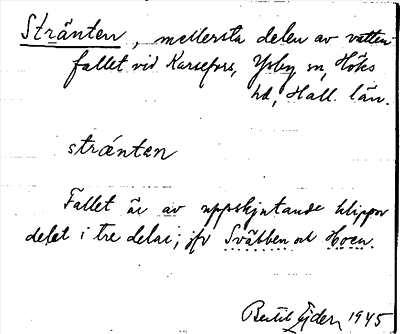 Stränten, mellersta delen av vatten-
fallet vid Karsefors, Ysby sn, Höks
hd, Hall. län.
stränten
Fallet är av uppskjutande klippor
delat i tre delar; jfr Svåbben och Hoen.
Bertil Ejder 1945